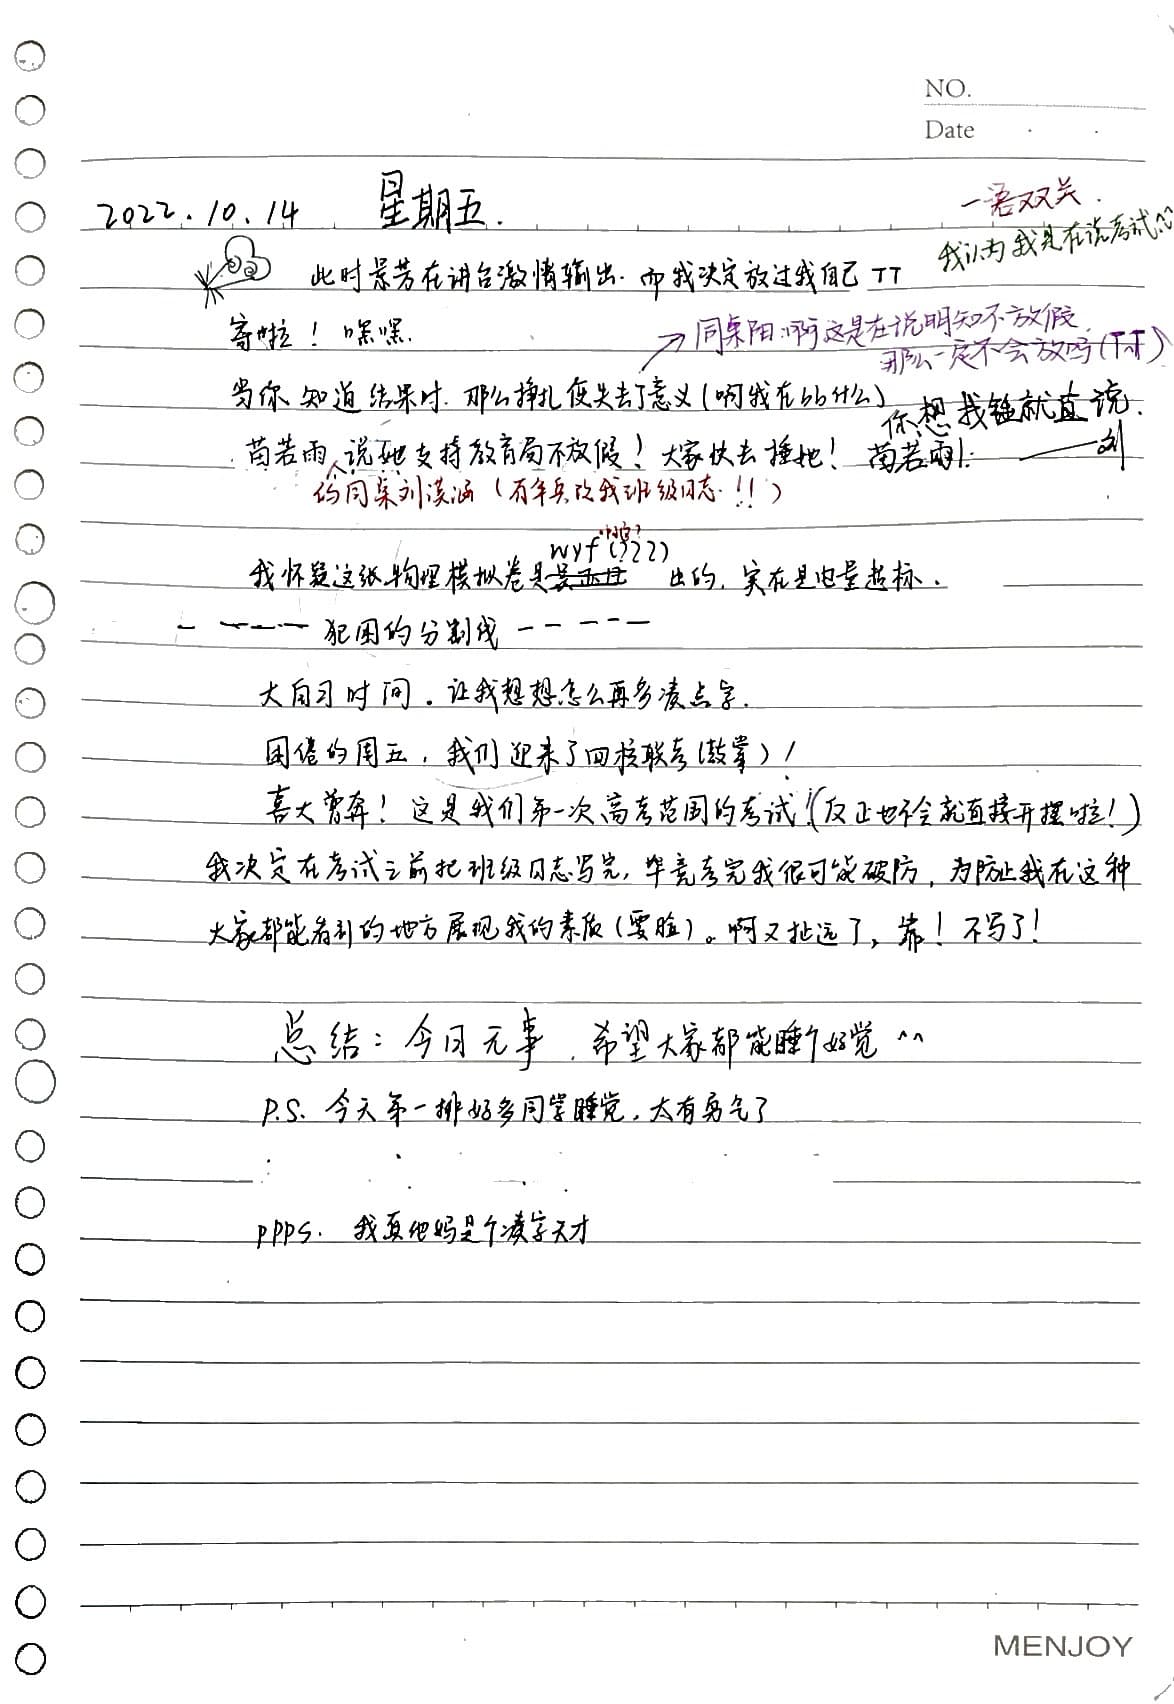 NO.
Date
2022.10.14 星期五.
一语双关.
我认为我是在说考试^^
此时景芳在讲台激情输出.而我决定放过我自己TT
寄啦!嘿嘿.
→同桌阳:啊这是在说明知不放假
那么一定不会放吗(TT)
当你知道结果时.那么挣扎便失去了意义(啊我在bb什么)
你想我锤就直说.
——刘
苗若雨说她支持教育局不放假!大家快去捶她!苗若雨!:
的同桌刘淇涵(有辛兵改我班级日志.!!)
wyf(???)
我怀疑这张物理模拟卷是出的,实在是电量超标.
- ---- 犯困的分割线 -----
大自习时间。让我想想怎么再多凑点字.
困倦的周五,我们迎来了四校联考(鼓掌)!
喜大普奔!这是我们第一次高考范围的考试!(反正也不会就直接开摆啦!)
我决定在考试之前把班级日志写完,毕竟考完我很可能破防,为防止我在这种
大家都能看到的地方展现我的素质(要脸)。啊又扯远了,靠!不写了!
总结:今日无事,希望大家都能睡个好觉^^
P.S.今天第一排好多同学睡觉,太有勇气了
PPPS.我真他妈是个凑字天才
MENJOY